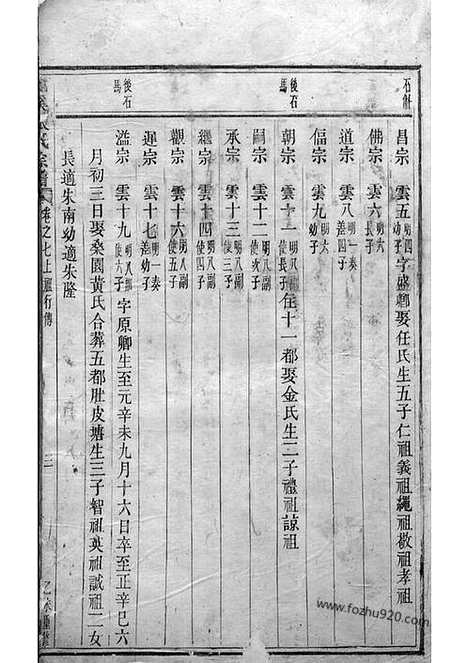 石什
昌宗 雲五 明四幼子 字盛郫娶任氏生五子仁祖義祖繩祖敬祖孝祖
佛宗 雲六 明六長子
道宗 雲八 明一奏善四子
偪宗 雲九 明六幼子
後石馬
朝宗 雲十一 明八副使長子 任十一都娶金氏生二子禮祖諒祖
嗣宗 雲十二 明八副使次子
承宗 雲十三 明八副使三子
繼宗 雲十四 明八副使四子
觀宗 雲十六 明八副使五子
迎宗 雲十七 明一奏差幼子
後石馬
溢宗 雲十九 明八副使六子 字原卿生至元辛未九月十六日卒至正辛巳六
月初三日娶桑園黃氏合葬五都肚皮塘生三子智祖英祖誠祖二女
長適朱南幼適朱隆
氏宗譜 卷之七上 雁行傳 三
www.fozhu920.com